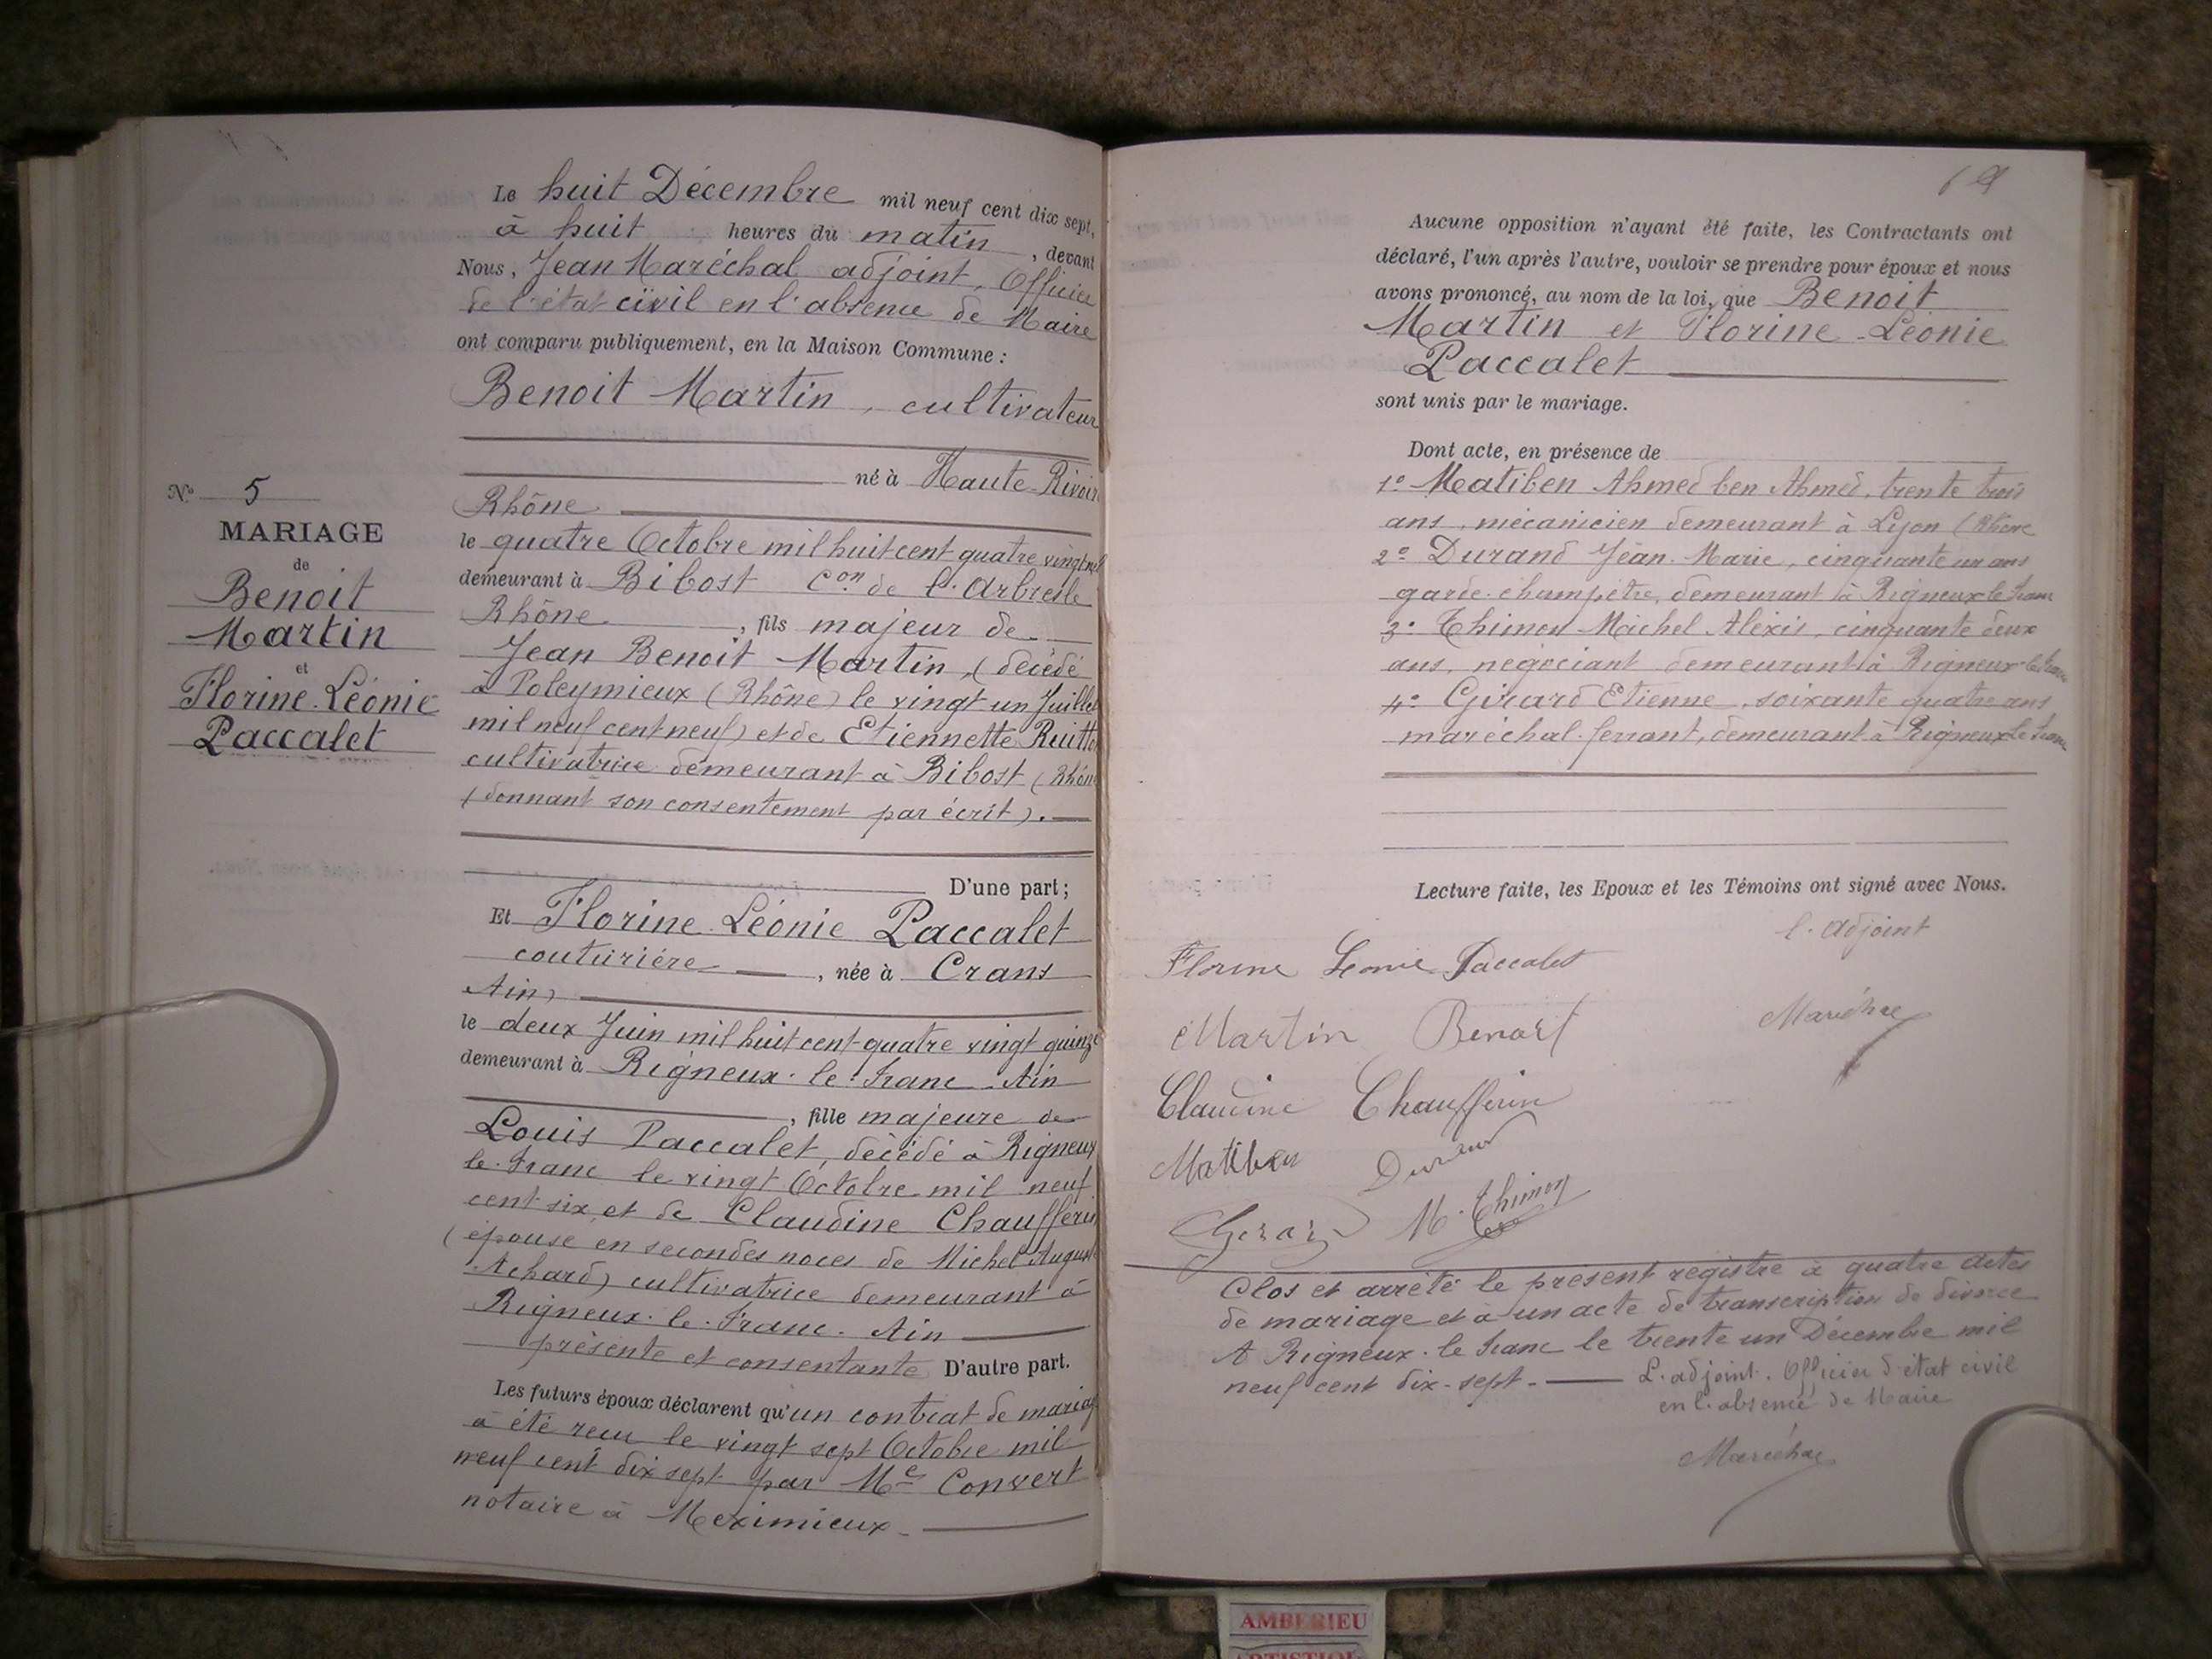 Le huit Décembre mil neuf cent dix sept,
à huit heures du matin, devant
Nous, Jean Maréchal adjoint, Officier
de l'état civil en l'absence de Maire
ont comparu publiquement, en la Maison Commune :
Benoit Martin, cultivateur
né à Haute-Rivoir
Rhône
le quatre Octobre mil huit cent quatre vingt
demeurant à Bibost Con de l'Arbresle
Rhône, fils majeur de
Jean Benoit Martin, (décédé
à Poleymieux (Rhône) le vingt un Juillet
mil neuf cent neuf) et de Etiennette
cultivatrice demeurant à Bibost (Rhône
(donnant son consentement par écrit).
D'une part;
Et Florine Léonie Paccalet
couturière, née à Crans
Ain)
le deux Juin mil huit cent quatre vingt quinze
demeurant à Rigneux-le-Franc-Ain
, fille majeure de
Louis Paccalet, décédé à Rigneux
le-Franc le vingt Octobre mil neuf
cent six, et de Claudine Chaufferin
(épouse en secondes noces de Michel Auguste
Achard) cultivatrice demeurant à
Rigneux-le-Franc-Ain
présente et consentante D'autre part.
Les futurs époux déclarent qu'un contrat de mariage
a été reçu le vingt sept Octobre mil
neuf cent dix sept par Me Convert
notaire à Meximieux
No 5
MARIAGE
de
Benoit
Martin
et
Florine-Léonie
Paccalet
69
Aucune opposition n'ayant été faite, les Contractants ont
déclaré, l'un après l'autre, vouloir se prendre pour époux et nous
avons prononcé, au nom de la loi, que Benoit
Martin et Florine-Léonie
Paccalet
sont unis par le mariage.
Dont acte, en présence de
1o Matiben Ahmed ben Ahmed, trente trois
ans, mécanicien demeurant à Lyon (Rhône
2o Durand Jean-Marie, cinquante un ans
garde-champêtre, demeurant à Rigneux le Franc
3o Thimon Michel Alexis, cinquante deux
ans, négociant demeurant à Rigneux-le-Franc
4o Girard Etienne, soixante quatre ans
maréchal-ferrant, demeurant à Rigneux le Franc
Lecture faite, les Epoux et les Témoins ont signé avec Nous.
l'adjoint
Florine Léonie Paccalet
Martin Benoit
Maréchal
Claudine Chaufferin
Matiben Durand
Girard M. Thimon
Clos et arrêté le présent registre à quatre actes
de mariage et à un acte de transcription de divorce
A Rigneux-le Franc le trente un Décembre mil
neuf cent dix-sept. L'adjoint. Officier d'état civil
en l'absence de Maire
Maréchal
AMBERIEU